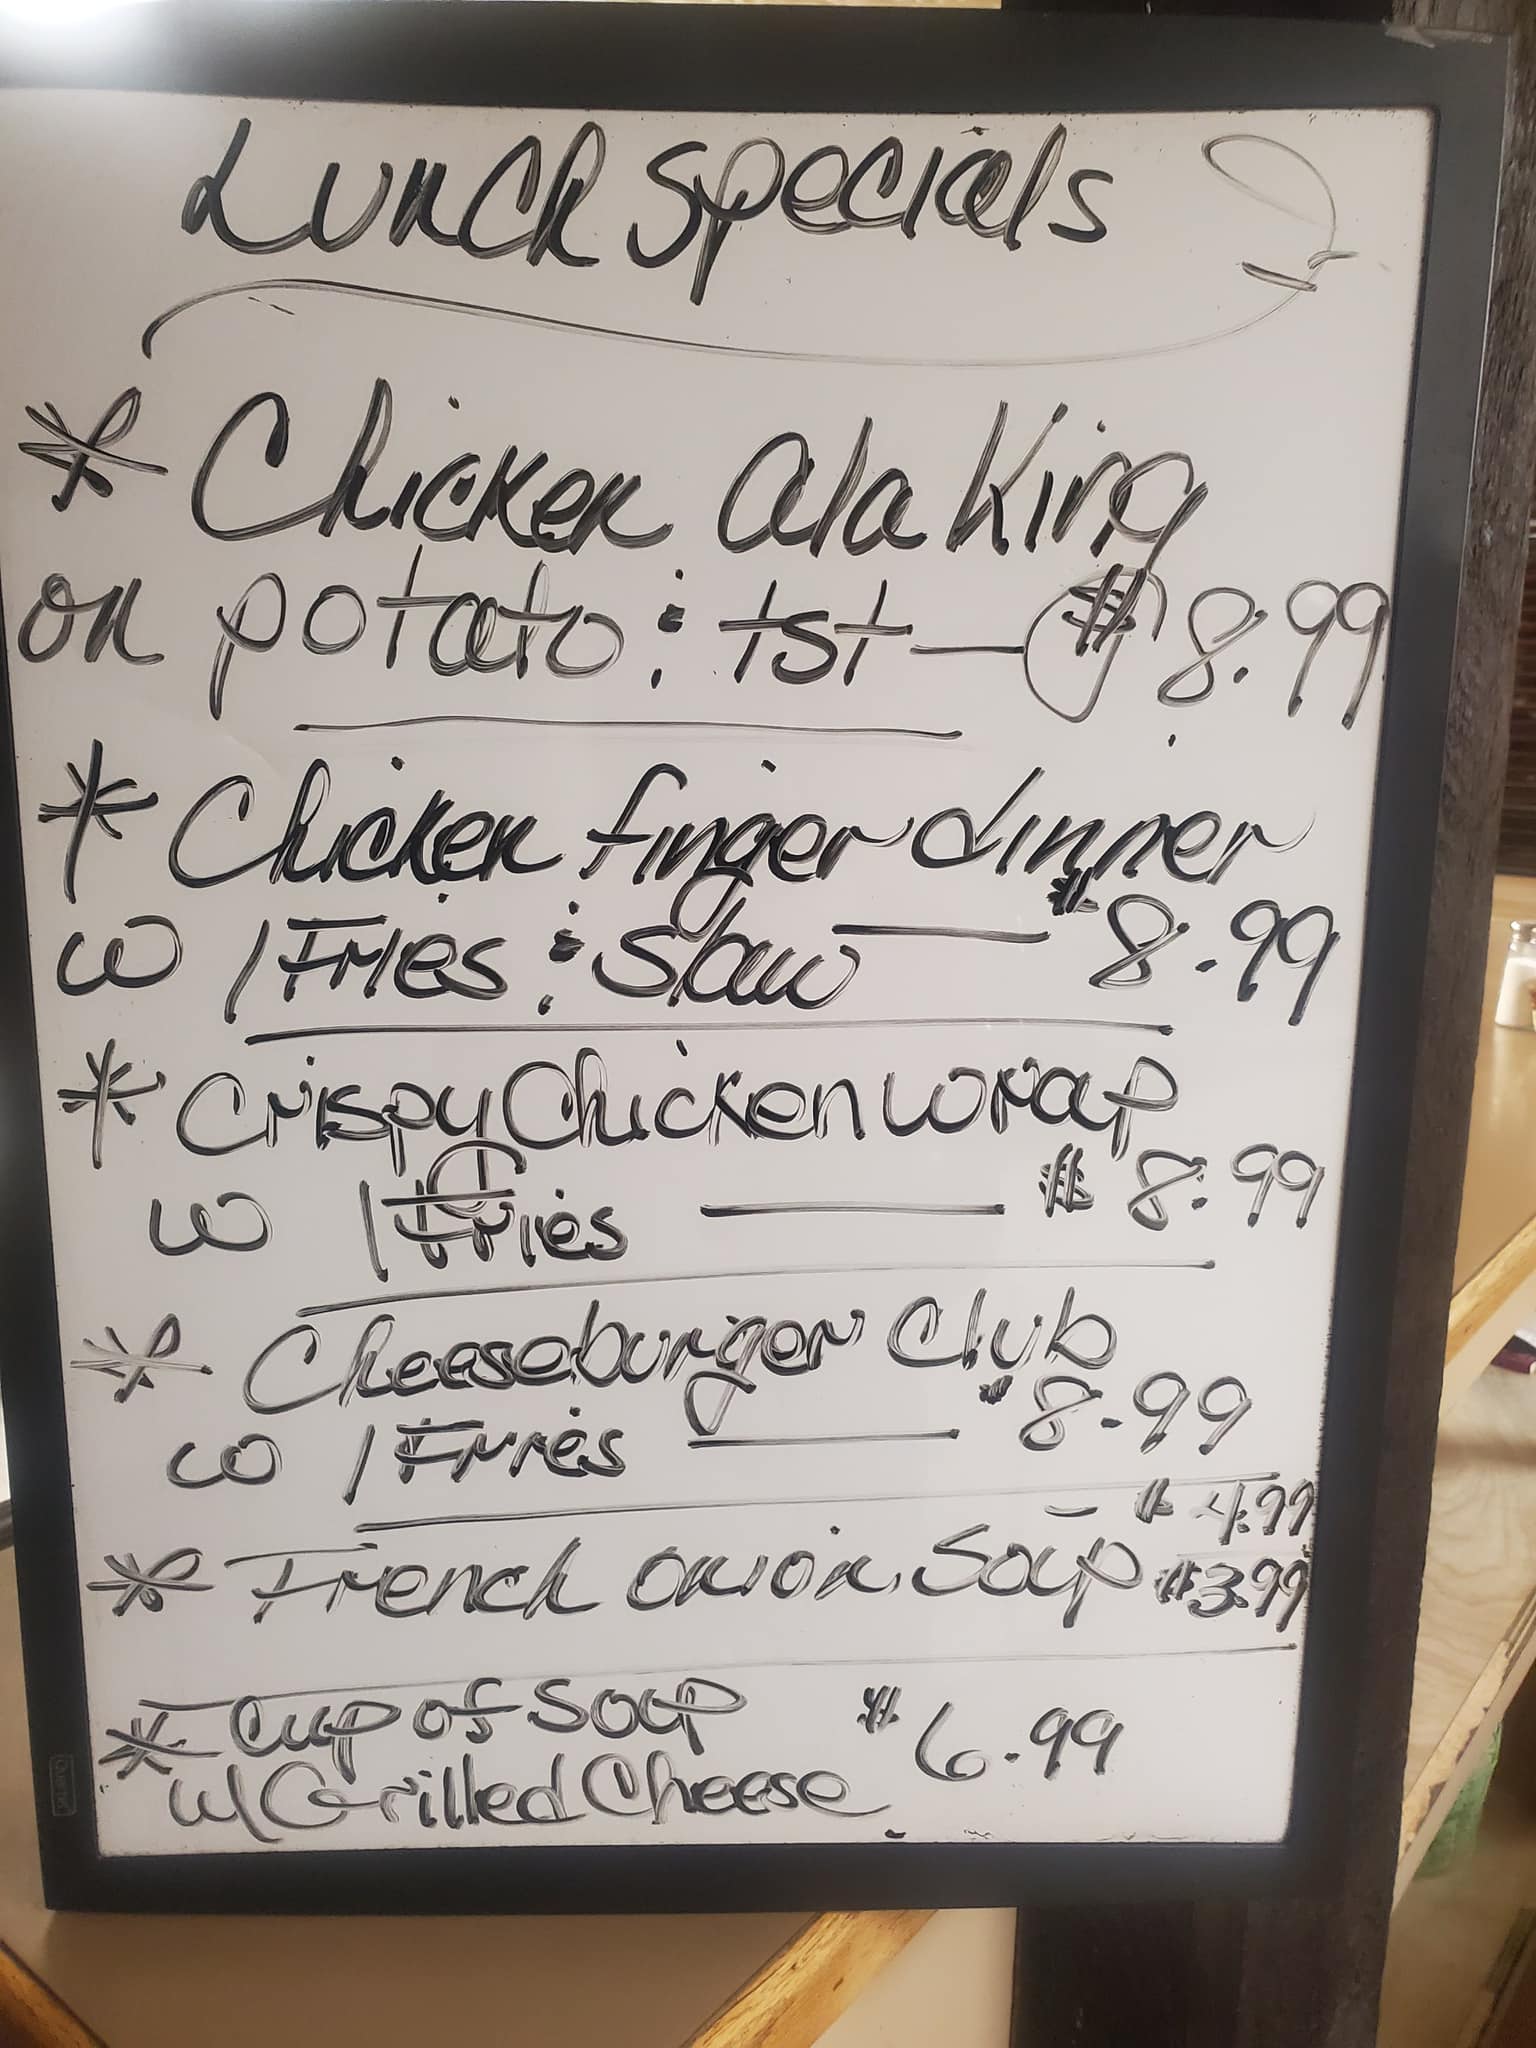 Lunch Specials
* Chicken ala King
on potato & tst — $8.99
* Chicken finger dinner
w/Fries & slaw — $8.99
* Crispy Chicken wrap
w/Fries — $8.99
* Cheeseburger Club
w/Fries — $8.99
- $4.99
* French onion Soup $3.99
* Cup of Soup $6.99
w/ Grilled Cheese